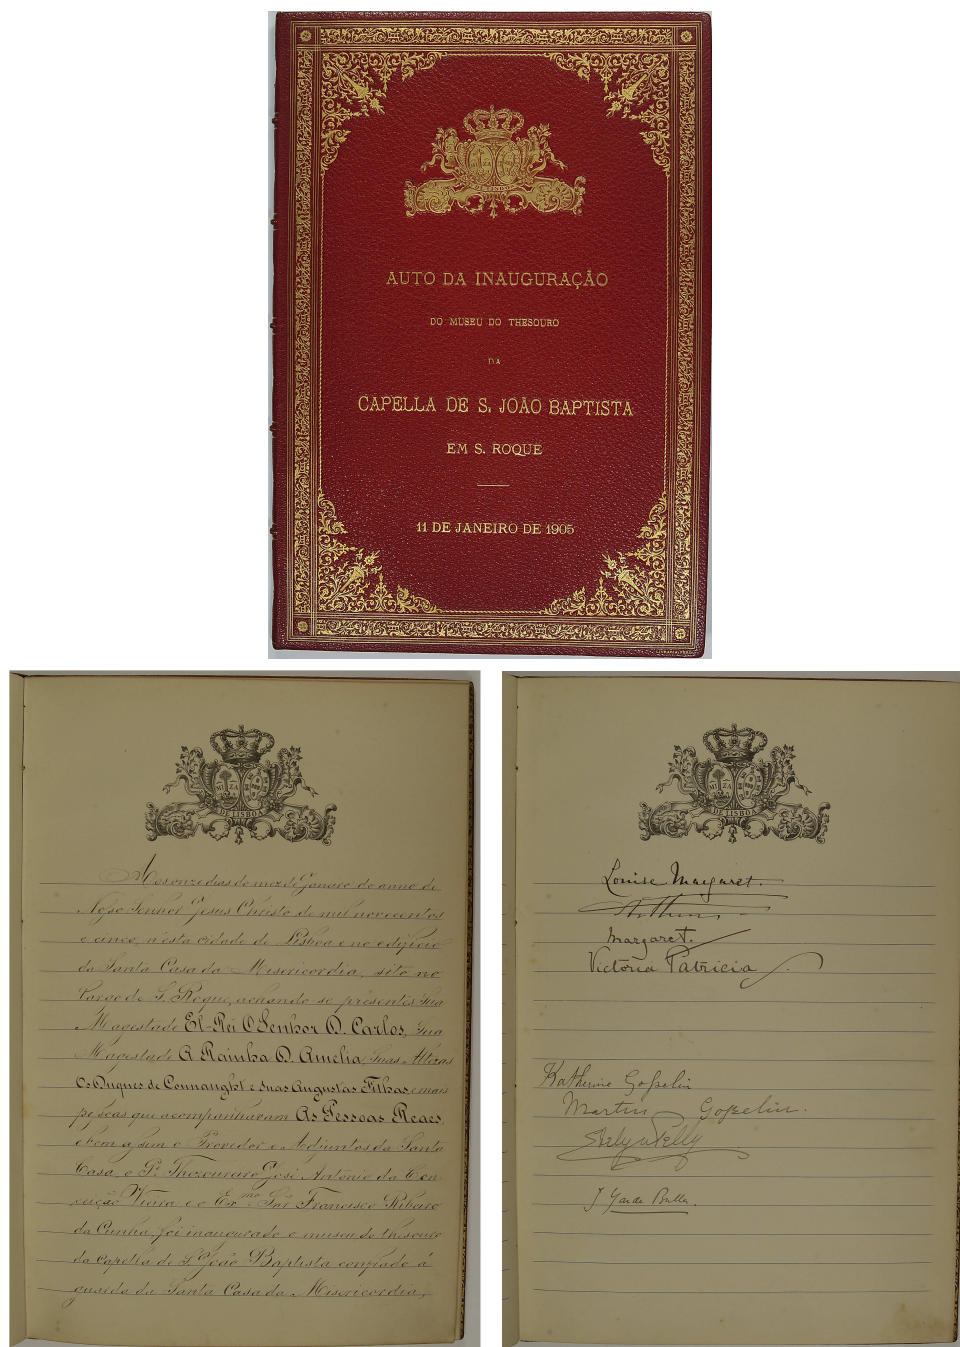 DE LISBOA
AUTO DA INAUGURAÇÃO
DO MUSEU DO THESOURO
DA
CAPELLA DE S. JOÃO BAPTISTA
EM S. ROQUE
11 DE JANEIRO DE 1905
MI ZA
DE LISBOA
Aos onze dias do mez de Janeiro do anno de
Nosso Senhor Jesus Christo de mil novecentos
e cinco, n'esta cidade de Lisboa e no edificio
da Santa Casa da Misericordia, sito no
Largo de S. Roque, achando-se presentes Sua
Magestade El-Rei O Senhor D. Carlos, Sua
Magestade A Rainha D. Amelia, Suas Altezas
Os Duques de Connaught e suas Augustas Filhas, e mais
pessoas que acompanhavam As Pessoas Reaes,
e bem assim o Provedor e Adjuntos da Santa
Casa, o Pe. Thezoureiro José Antonio da Con-
ceição Vieira e o Exmo. Snr. Francisco Ribeiro
da Cunha, foi inaugurado o museu do thesouro
da capella de S. João Baptista confiado á
guarda da Santa Casa da Misericordia,
MI ZA
DE LISBOA
Louise Margaret.
Arthur
Margaret.
Victoria Patricia
Katherine Gosselin
Martin Gosselin.
Pelly
J Yarde Buller.